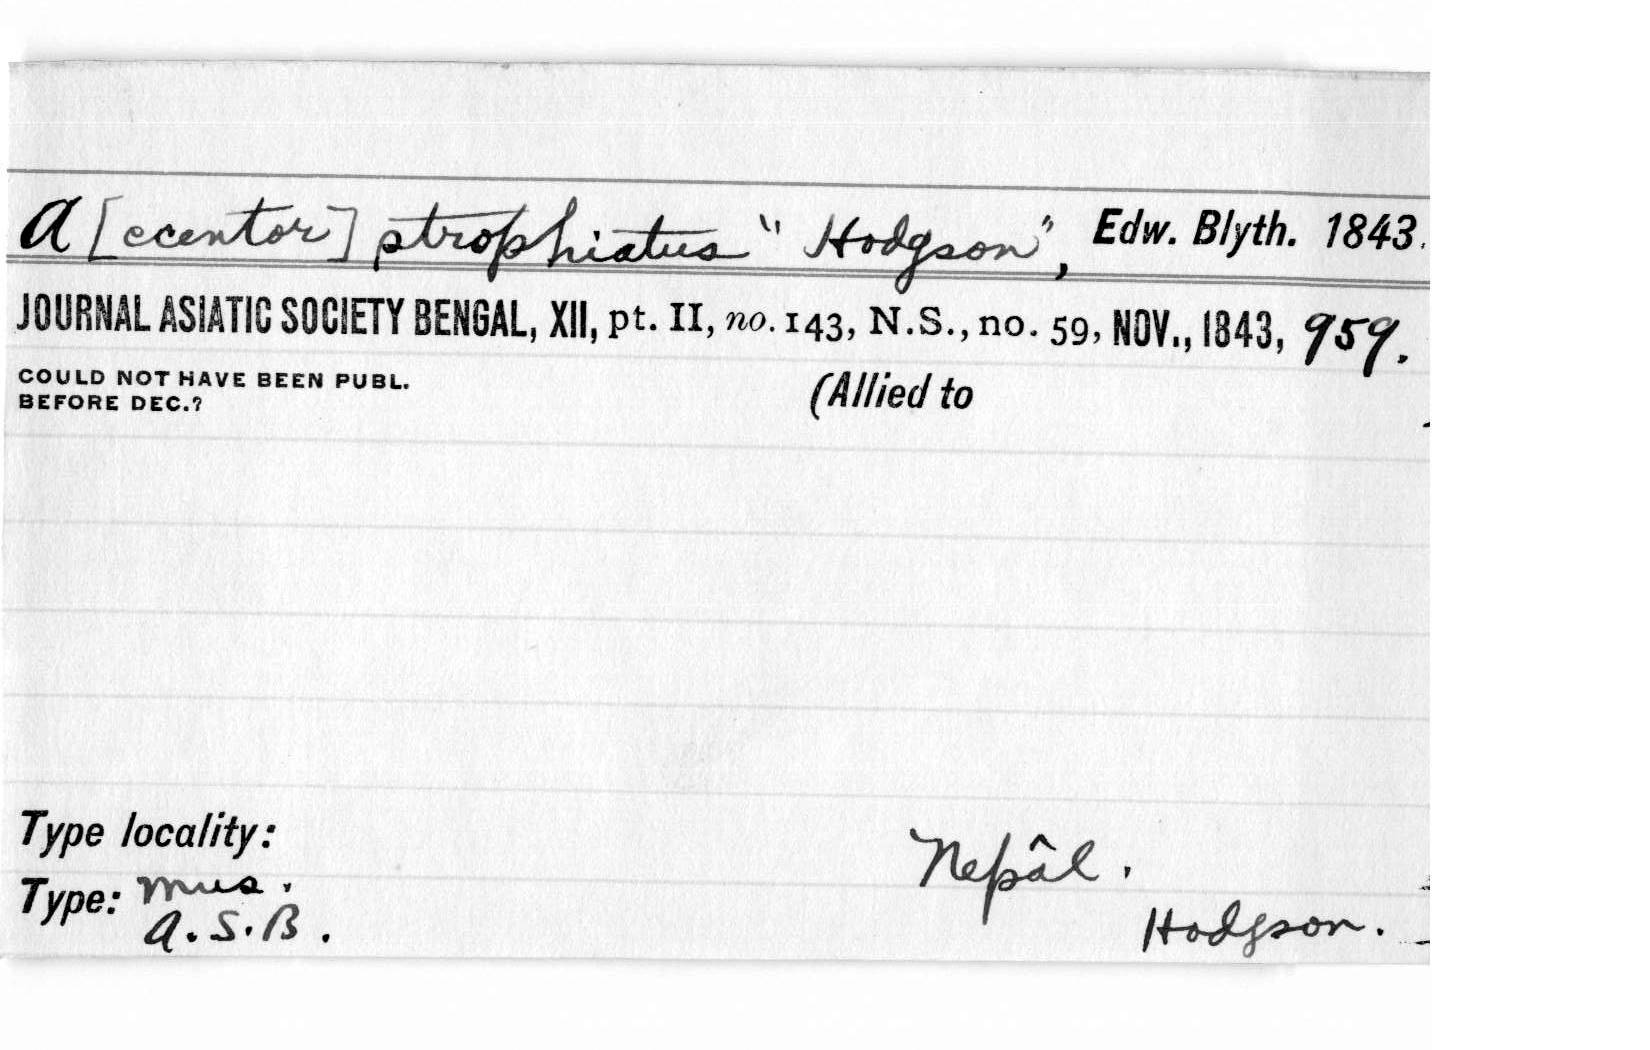 A[ccentor] strophiatus "Hodgson", Edw. Blyth. 1843.
JOURNAL ASIATIC SOCIETY BENGAL, XII, pt. II, no. 143, N.S., no. 59, NOV., 1843, 959.
COULD NOT HAVE BEEN PUBL.
BEFORE DEC.?
(Allied to
Type locality: Nepâl.
Type: Mus.
A.S.B. Hodgson.